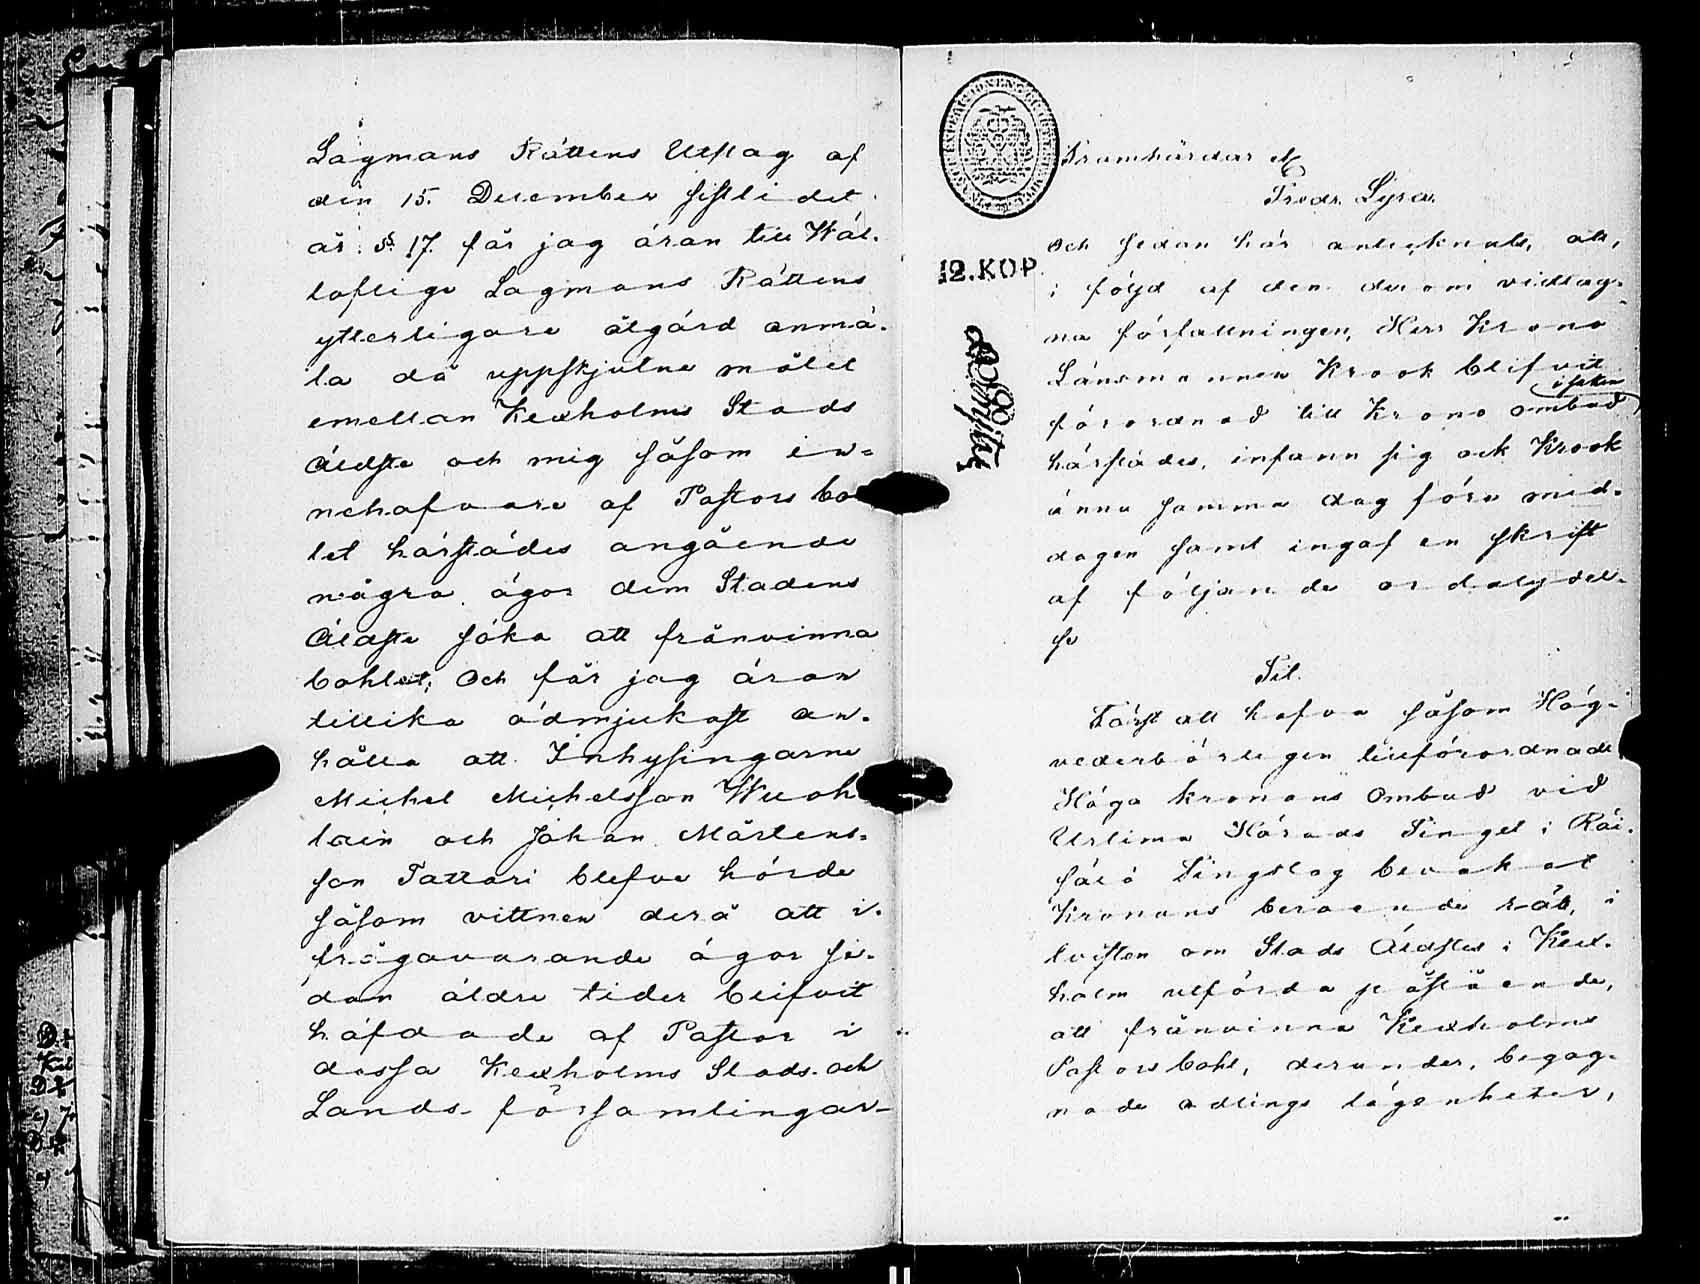 Lagmans Rättens Utslag af
den 15. December sistlidet
år § 17. får jag äran till Wäl-
loflige Lagmans Rättens
ytterligare åtgärd anmä-
la då uppskjutne målet
emellan Kexholms Stads
Äldste och mig såsom in-
nehafvare af Pastors bo
let härstädes angående
några ägor dem Stadens
Äldste söka att frånvinna
bohlet; Och får jag äran
tillika ödmjukast an-
hålla att Inhysingarne
Michel Michelsson Wuoh
lain och Johan Mårtens-
son Tattari blefve hörde
såsom vittnen derå att i-
frågavarande ägor se-
dan äldre tider blifvit
häfdade af Pastor i
dessa Kexholms Stads- och
Lands- församlingar-
Framhärdar etc
Fredr. Lyra.
12. KOP
och sedan här antecknats, att,
i följd af den derom vidtag-
na författningen, Herr Krono
Länsmannen Krook blifvit
i saken
förordnad till Krono ombud
härstädes, infann sig ock Krook
ännu samma dag före mid-
dagen samt ingaf en skrift
af följande ordalydel-
se
Til.
Täckt att hafva såsom Hög-
vederbörligen tillförordnade
Höga kronans Ombud vid
Urtima Härads Tinget i Räi-
sälä Tingslag bevakat
Kronans beroende rätt, i
tvisten om Stads Äldstes i Kex-
holm utförda påstående,
att frånvinna Kexholms
Pastors bohl, derunder, begag-
nade odlings lägenheter,